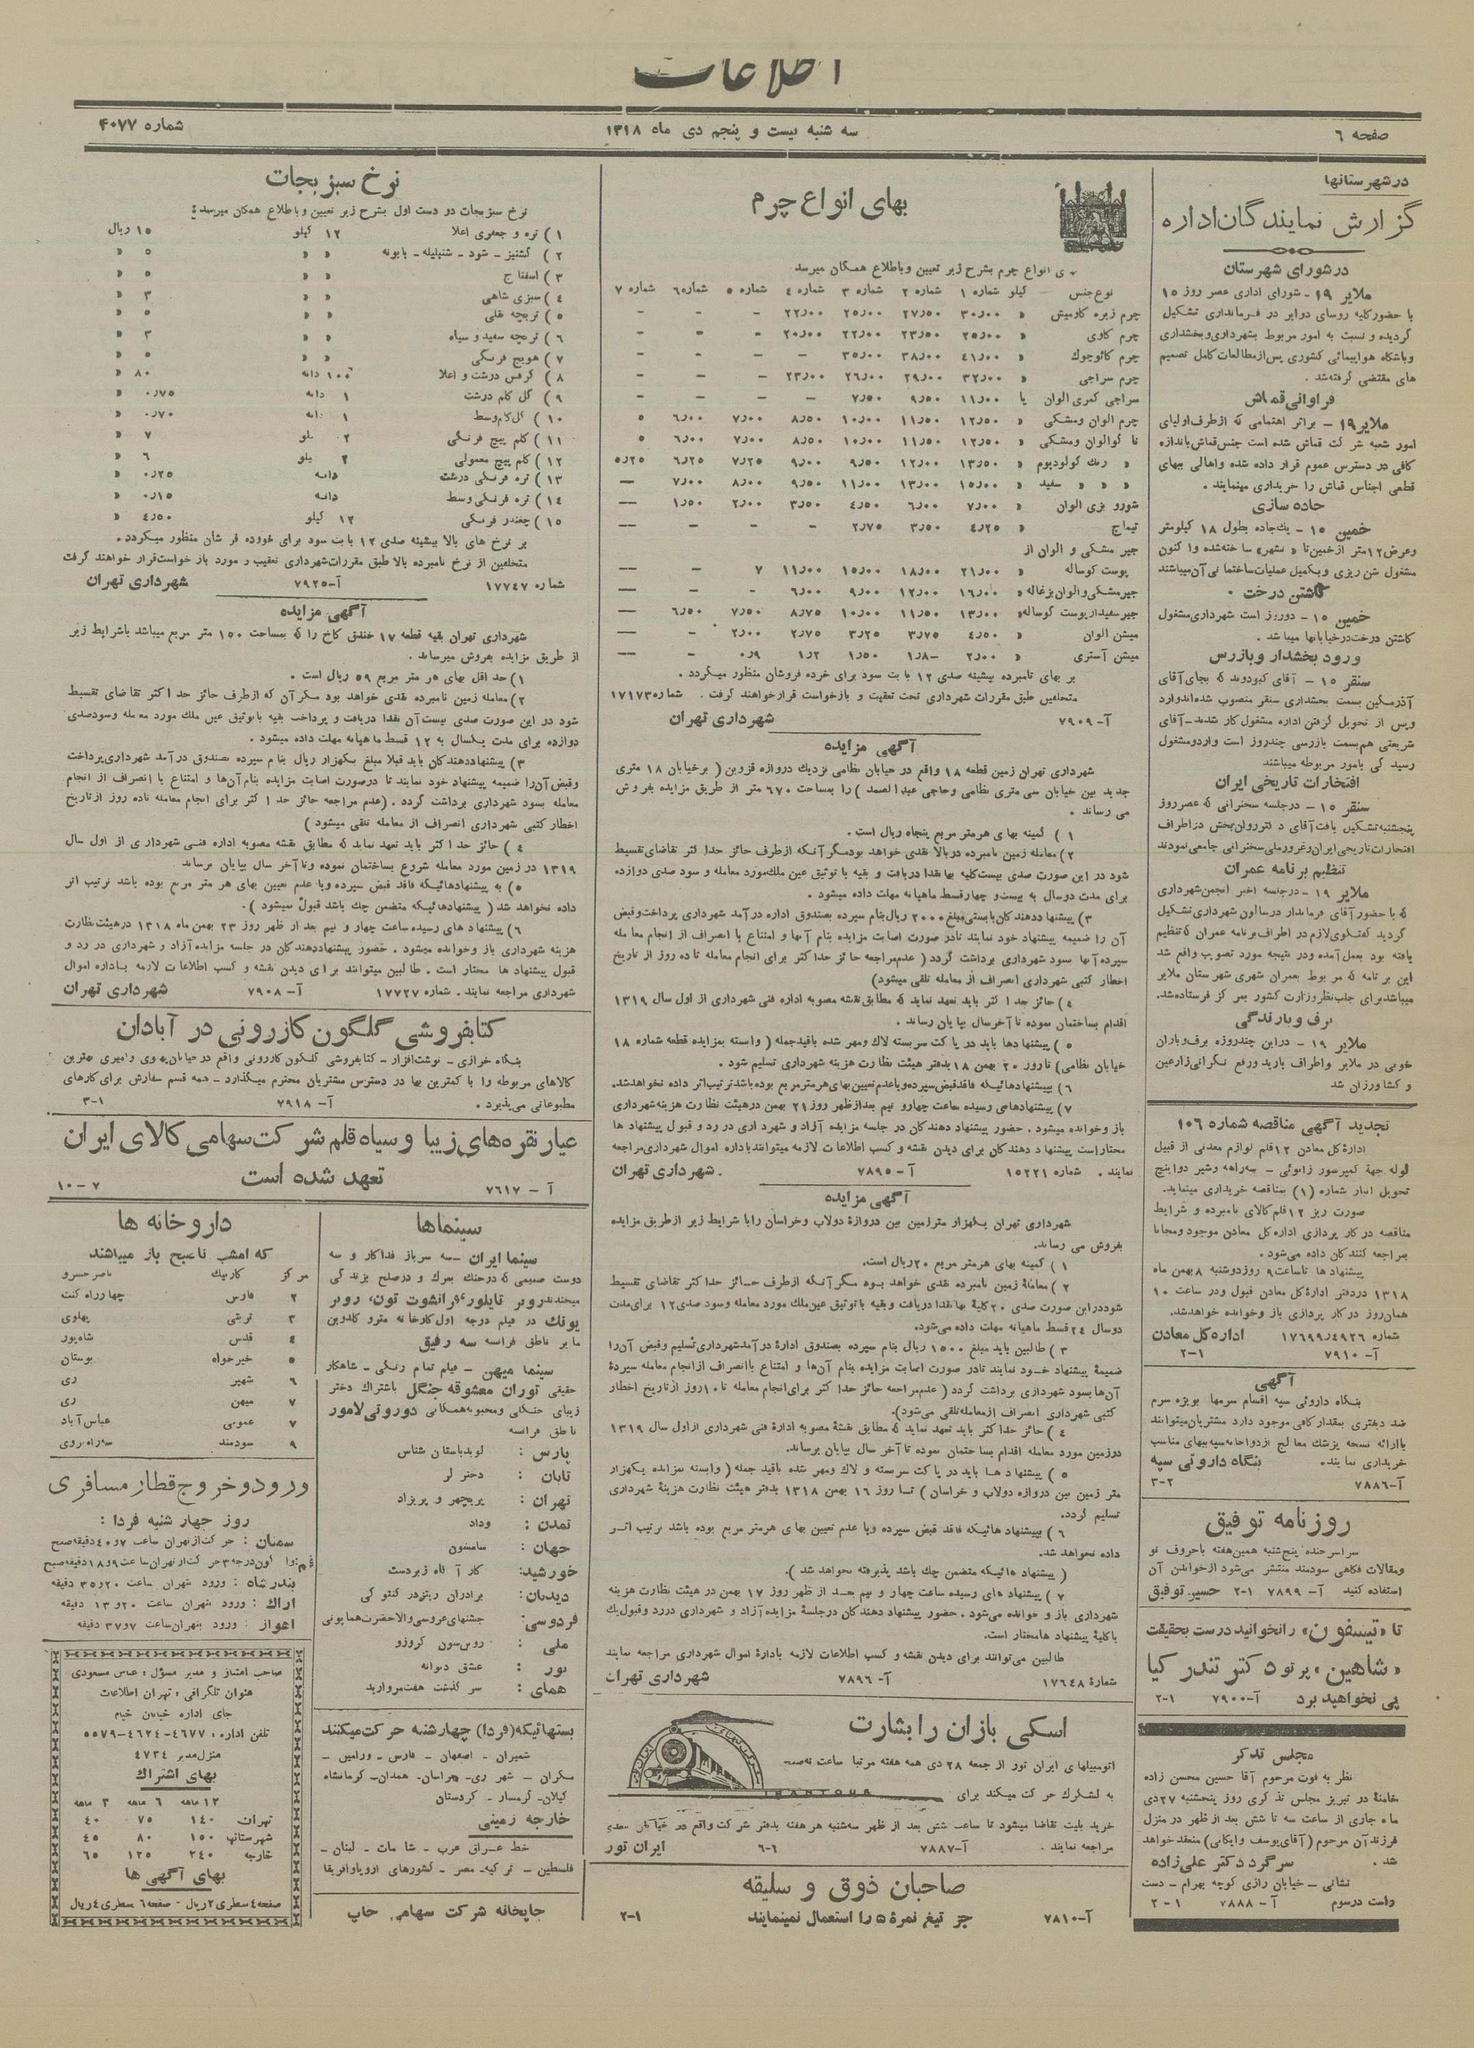 اطلاعات
صفحه ۶
سه شنبه بیست و پنجم دی ماه ۱۳۱۸
شماره ۴۰۷۷
در شهرستانها
گزارش نمایندگان اداره
در شورای شهرستان
ملایر ۱۹ - شورای اداری عصر روز ۱۵
با حضور کلیه روسای دوایر در فرمانداری تشکیل
گردیده و نسبت به امور مربوط بشهرداری و بخشداری
و باشگاه هواپیمائی کشوری پس از مطالعات کامل تصمیم
های مقتضی گرفته شد.
فراوانی قماش
ملایر ۱۹ - براثر اهتمامی که از طرف اولیای
امور شعبه شرکت قماش شده است جنس قماش باندازه
کافی در دسترس عموم قرار داده شده و اهالی ببهای
قطعی اجناس قماش را خریداری مینمایند .
جاده سازی
خمین ۱۵ - یک جاده بطول ۱۸ کیلومتر
و عرض ۱۲ متر از خمین تا « شهر» ساخته شده و اکنون
مشغول شن ریزی و تکمیل عملیات ساختمانی آن میباشند
کاشتن درخت
خمین ۱۵ - دوروز است شهرداری مشغول
کاشتن درخت در خیابانها میباشد .
ورود بخشدار و بازرس
سنقر ۱۵ - آقای کبودوند که بجای آقای
آذرمگین بسمت بخشداری سنقر منصوب شده اند وارد
و پس از تحویل گرفتن اداره مشغول کار شدند - آقای
شریعتی هم بسمت بازرسی چندروز است وارد و مشغول
رسیدگی بامور مربوطه میباشند
افتخارات تاریخی ایران
سنقر ۱۵ - در جلسه سخنرانی که عصر روز
پنجشنبه تشکیل یافت آقای دکتر روان بخش در اطراف
افتخارات تاریخی ایران و غرور ملی سخنرانی جامعی نمودند
تنظیم برنامه عمران
ملایر ۱۹ - در جلسه اخیر انجمن شهرداری
که با حضور آقای فرماندار در سالون شهرداری تشکیل
گردید گفتگوی لازم در اطراف برنامه عمران که تنظیم
یافته بود بعمل آمده و در نتیجه مورد تصویب واقع شد
این برنامه که مربوط بعمران شهری شهرستان ملایر
میباشد برای جلب نظر وزارت کشور بمرکز فرستاده شد.
برف و بارندگی
ملایر ۱۹ - در این چندروزه برف و باران
خوبی در ملایر و اطراف بارید و رفع نگرانی زارعین
و کشاورزان شد
تجدید آگهی مناقصه شماره ۱۰۶
اداره کل معادن ۱۲ قلم لوازم معدنی از قبیل
لوله جهة کمپرسور زانوئی - سه راهه و شیر دو اینچ
تحویل انبار شماره (۱) بمناقصه خریداری مینماید.
صورت ریز ۱۲ قلم کالای نامبرده و شرایط
مناقصه در کار پردازی اداره کل معادن موجود و مجانا
بمراجعه کنندگان داده می شود .
پیشنهاد ها تا ساعت ۹ روز دوشنبه ۸ بهمن ماه
۱۳۱۸ در دفتر ادارۀ کل معادن قبول و در ساعت ۱۰
همان روز در کار پردازی باز و خوانده خواهد شد.
شماره ۱۷۶۹۹٫۴۹۲۶ اداره کل معادن
آ- ۷۹۱۰ ۱-۲
آگهی
بنگاه داروئی سپه اقسام سرمها بویژه سرم
ضد دیفتری بمقدار کافی موجود دارد مشتریان میتوانند
با ارائه نسخه پزشک معالج از دواخانه سپه ببهای مناسب
خریداری نمایند. بنگاه داروئی سپه
آ-۷۸۸۶ ۲-۳
روزنامه توفیق
سراسر خنده پنج شنبه همین هفته با حروف نو
و مقالات فکاهی سودمند منتشر می شود از خواندن آن
استفاده کنید آ- ۷۸۹۹ ۱-۲ حسین توفیق
تا «تیسفون» را نخوانید درست بحقیقت
«شاهین» پرتو دکتر تندر کیا
پی نخواهید برد آ-۷۹۰۰ ۱-۲
مجلس تذکر
نظر به فوت مرحوم آقا حسین محسن زاده
خامنۀ در تبریز مجلس تذکری روز پنجشنبه ۲۷ دی
ماه جاری از ساعت سه تا شش بعد از ظهر در منزل
فرزند آن مرحوم (آقای یوسف وایکانی) منعقد خواهد
شد . سرگرد دکتر علی زاده
نشانی - خیابان رازی کوچه بهرام - دست
راست در سوم آ- ۷۸۸۸ ۱-۲
بهای انواع چرم
ی انواع چرم بشرح زیر تعیین و باطلاع همگان میرسد
نوع جنس کیلو شماره ۱ شماره ۲ شماره ۳ شماره ۴ شماره ۵ شماره ۶ شماره ۷
چرم زیره گاومیش « ۳۰٫۰۰ ۲۷٫۵۰ ۲۵٫۰۰ ۲۲٫۰۰ - - -
چرم گاوی « ۲۵٫۰۰ ۲۳٫۵۰ ۲۲٫۰۰ ۲۰٫۰۰ - - -
چرم کائوچوک « ۴۱٫۰۰ ۳۸٫۰۰ ۳۵٫۰۰ - - - -
چرم سراجی « ۳۲٫۰۰ ۲۹٫۰۰ ۲۶٫۰۰ ۲۳٫۰۰ - - -
سراجی کمری الوان پا ۱۱٫۰۰ ۹٫۵۰ ۷٫۵۰ - - - -
چرم الوان و مشکی « ۱۲٫۵۰ ۱۱٫۵۰ ۱۰٫۰۰ ۸٫۵۰ ۷٫۰۰ ۶٫۰۰ ۵
نا کوالوان و مشکی « ۱۲٫۵۰ ۱۱٫۵۰ ۱۰٫۰۰ ۸٫۵۰ ۷٫۰۰ ۶٫۰۰ ۵
« رنگ کولودیوم « ۱۳٫۵۰ ۱۲٫۰۰ ۹٫۵۰ ۹٫۰۰ ۷٫۲۵ ۶٫۲۵ ۵٫۲۵
« « سفید « ۱۵٫۰۰ ۱۳٫۰۰ ۱۱٫۰۰ ۹٫۵۰ ۸٫۰۰ ۷٫۰۰ —
شورو بزی الوان « ۷٫۰۰ ۶٫۰۰ ۴٫۵۰ ۳٫۵۰ ۲٫۰۰ ۱٫۵۰ —
تیماج « ۴٫۲۵ ۳٫۵۰ ۲٫۷۵ - - - —
جیر مشکی و الوان از
پوست گوساله « ۲۱٫۰۰ ۱۸٫۰۰ ۱۵٫۰۰ ۱۱٫۰۰ ۷ - —
جیر مشکی و الوان بزغاله « ۱۶٫۰۰ ۱۲٫۰۰ ۹٫۰۰ ۶٫۰۰ - - —
جیر سفید از پوست گوساله « ۱۳٫۰۰ ۱۱٫۵۰ ۱۰٫۰۰ ۸٫۷۵ ۷٫۵۰ ۶٫۵۰ —
میشن الوان « ۴٫۵۰ ۳٫۷۵ ۳٫۲۵ ۲٫۷۵ ۲٫۰۰ - —
میشن آستری « ۲٫۰۰ ۱٫۸۰ ۱٫۵۰ ۱٫۲ ۰٫۹ - —
بر بهای نامبرده بیشینه صدی ۱۲ بابت سود برای خرده فروشان منظور میگردد .
متخلفین طبق مقررات شهرداری تحت تعقیب و بازخواست قرار خواهند گرفت . شماره ۱۷۱۷۳
آ- ۷۹۰۹ شهرداری تهران
آگهی مزایده
شهرداری تهران زمین قطعه ۱۸ واقع در خیابان نظامی نزدیک دروازه قزوین ( بر خیابان ۱۸ متری
جدید بین خیابان سی متری نظامی و حاجی عبدالصمد ) را بمساحت ۶۷۰ متر از طریق مزایده بفروش
می رساند .
۱ ) کمینه بهای هر متر مربع پنجاه ریال است.
۲) معامله زمین نامبرده در بالا نقدی خواهد بود مگر آنکه از طرف حائز حداکثر تقاضای تقسیط
شود در این صورت صدی بیست کلیه بها نقدا دریافت و بقیه با توثیق عین ملک مورد معامله و سود صدی دوازده
برای مدت دو سال به بیست و چهار قسط ماهیانه مهلت داده میشود .
۳) پیشنهاد دهندگان بایستی مبلغ ۲۰۰۰ ریال بنام سپرده بصندوق اداره درآمد شهرداری پرداخت و قبض
آن را ضمیمه پیشنهاد خود نمایند تا در صورت اصابت مزایده بنام آنها و امتناع یا انصراف از انجام معامله
سپرده آنها بسود شهرداری برداشت گردد ( عدم مراجعه حائز حداکثر برای انجام معامله تا ده روز از تاریخ
اخطار کتبی شهرداری انصراف از معامله تلقی میشود)
۴) حائز حداکثر باید تعهد نماید که مطابق نقشه مصوبه اداره فنی شهرداری از اول سال ۱۳۱۹
اقدام بساختمان نموده تا آخر سال بپایان رساند .
۵ ) پیشنهادها باید در پاکت سربسته لاک و مهر شده باقید جمله ( وابسته بمزایده قطعه شماره ۱۸
خیابان نظامی) تا روز ۲۰ بهمن ۱۸ بدفتر هیئت نظارت هزینه شهرداری تسلیم شود .
۶) بپیشنهادهائیکه فاقد قبض سپرده و یا عدم تعیین بهای هر متر مربع بوده باشد ترتیب اثر داده نخواهد شد.
۷) پیشنهادهای رسیده ساعت چهار و نیم بعد از ظهر روز ۲۱ بهمن در هیئت نظارت هزینه شهرداری
باز و خوانده میشود . حضور پیشنهاد دهندگان در جلسه مزایده آزاد و شهرداری در رد و قبول پیشنهاد ها
مختار است پیشنهاد دهندگان برای دیدن نقشه و کسب اطلاعات لازمه میتوانند باداره اموال شهرداری مراجعه
نمایند . شماره ۱۵۲۲۱ آ- ۷۸۹۵ شهرداری تهران
آگهی مزایده
شهرداری تهران یکهزار متر زمین بین دروازۀ دولاب و خراسان را با شرایط زیر از طریق مزایده
بفروش می رساند.
۱ ) کمینه بهای هر متر مربع ۲۰ ریال است.
۲ ) معاملۀ زمین نامبرده نقدی خواهد بود مگر آنکه از طرف حائز حداکثر تقاضای تقسیط
شود در این صورت صدی ۲۰ کلیۀ بها نقدا دریافت و بقیه با توثیق عین ملک مورد معامله و سود صدی ۱۲ برای مدت
دو سال ۲۴ قسط ماهیانه مهلت داده می شود.
۳ ) طالبین باید مبلغ ۱۵۰۰ ریال بنام سپرده بصندوق ادارۀ درآمد شهرداری تسلیم و قبض آن را
ضمیمۀ پیشنهاد خود نمایند تا در صورت اصابت مزایده بنام آن ها و امتناع یا انصراف از انجام معامله سپردۀ
آن ها بسود شهرداری برداشت گردد ( عدم مراجعه حائز حداکثر برای انجام معامله تا ۱۰ روز از تاریخ اخطار
کتبی شهرداری انصراف از معامله تلقی می شود).
۴ ) حائز حداکثر باید تعهد نماید که مطابق نقشۀ مصوبه ادارۀ فنی شهرداری از اول سال ۱۳۱۹
در زمین مورد معامله اقدام بساختمان نموده تا آخر سال بپایان برساند.
۵ ) پیشنهاد ها باید در پاکت سربسته و لاک و مهر شده باقید جمله ( وابسته بمزایده یکهزار
متر زمین بین دروازه دولاب و خراسان ) تا روز ۱۶ بهمن ۱۳۱۸ بدفتر هیئت نظارت هزینۀ شهرداری
تسلیم گردد.
۶ ) بپیشنهاد هائیکه فاقد قبض سپرده و یا عدم تعیین بهای هر متر مربع بوده باشد ترتیب اثر
داده نخواهد شد.
( پیشنهاد هائیکه متضمن چک باشد پذیرفته نخواهد شد ).
۷ ) پیشنهاد های رسیده ساعت چهار و نیم بعد از ظهر روز ۱۷ بهمن در هیئت نظارت هزینه
شهرداری باز و خوانده می شود . حضور پیشنهاد دهندگان در جلسۀ مزایده آزاد و شهرداری در رد و قبول یک
یا کلیۀ پیشنهاد ها مختار است.
طالبین می توانند برای دیدن نقشه و کسب اطلاعات لازمه بادارۀ اموال شهرداری مراجعه نمایند
شمارۀ ۱۷۶۴۸ آ- ۷۸۹۶ شهرداری تهران
اسکی بازان را بشارت
اتومبیلهای ایران تور از جمعه ۲۸ دی همه هفته مرتبا ساعت نه صبح
به لشگرک حرکت میکند برای
خرید بلیت تقاضا میشود تا ساعت شش بعد از ظهر سه شنبه هر هفته بدفتر شرکت واقع در خیابان سعدی
مراجعه نمایند . آ-۷۸۸۷ ۶-۱ ایران تور
IRANTOUR
صاحبان ذوق و سلیقه
آ-۷۸۱۰ جز تیغ نمرۀ ۵ را استعمال نمینمایند ۱-۲
نرخ سبزیجات
نرخ سبزیجات دو دست اول بشرح زیر تعیین و باطلاع همگان میرسد:
۱ ) تره و جعفری اعلا ۱۲ کیلو ۱۵ ریال
۲ ) گشنیز - شود - شنبلیله - بابونه « « ۵ «
۳ ) اسفناج « « ۵ «
۴ ) سبزی شاهی « « ۳ «
۵ ) تربچه نقلی « « ۵ «
۶ ) تربچه سفید و سیاه « « ۳ «
۷ ) هویج فرنگی « « ۵ «
۸ ) کرفس درشت و اعلا ۱۰۰ دانه ۸۰ «
۹ ) گل کلم درشت ۱ دانه ۰٫۷۵ «
۱۰ ) گل کلم وسط ۱ دانه ۰٫۷۰ «
۱۱ ) کلم پیچ فرنگی ۲ یلو ۷ «
۱۲ ) کلم پیچ معمولی ۲ یلو ۶ «
۱۳ ) تره فرنگی درشت دانه ۰٫۲۵ «
۱۴ ) تره فرنگی وسط دانه ۰٫۱۵ «
۱۵ ) چغندر فرنگی ۱۲ کیلو ۴٫۵۰ «
بر نرخ های بالا بیشینه صدی ۱۲ بابت سود برای خورده فرشان منظور میگردد .
متخلفین از نرخ نامبرده بالا طبق مقررات شهرداری تعقیب و مورد بازخواست قرار خواهند گرفت
شماره ۱۷۷۴۷ آ-۷۹۲۵ شهرداری تهران
آگهی مزایده
شهرداری تهران بقیه قطعه ۱۷ خندق کاخ را که بمساحت ۱۵۰ متر مربع میباشد با شرایط زیر
از طریق مزایده بفروش میرساند .
۱) حداقل بهای هر متر مربع ۵۹ ریال است .
۲) معامله زمین نامبرده نقدی خواهد بود مگر آن که از طرف حائز حداکثر تقاضای تقسیط
شود در این صورت صدی بیست آن نقدا دریافت و پرداخت بقیه با توثیق عین ملک مورد معامله و سود صدی
دوازده برای مدت یکسال به ۱۲ قسط ماهیانه مهلت داده میشود .
۳) پیشنهاد دهندگان باید قبلا مبلغ یکهزار ریال بنام سپرده بصندوق درآمد شهرداری پرداخت
و قبض آن را ضمیمه پیشنهاد خود نمایند تا در صورت اصابت مزایده بنام آن ها و امتناع یا انصراف از انجام
معامله بسود شهرداری برداشت گردد . (عدم مراجعه حائز حداکثر برای انجام معامله تا ده روز از تاریخ
اخطار کتبی شهرداری انصراف از معامله تلقی میشود )
۴ ) حائز حداکثر باید تعهد نماید که مطابق نقشه مصوبه اداره فنی شهرداری از اول سال
۱۳۱۹ در زمین مورد معامله شروع بساختمان نموده و تا آخر سال بپایان برساند
۵) به پیشنهادهائیکه فاقد قبض سپرده و یا عدم تعیین بهای هر متر مربع بوده باشد ترتیب اثر
داده نخواهد شد ( پیشنهادهائیکه متضمن چک باشد قبول نمیشود ) .
۶) پیشنهاد های رسیده ساعت چهار و نیم بعد از ظهر روز ۲۳ بهمن ماه ۱۳۱۸ در هیئت نظارت
هزینه شهرداری باز و خوانده میشود . حضور پیشنهاد دهندگان در جلسه مزایده آزاد و شهرداری در رد و
قبول پیشنهاد ها مختار است . طالبین میتوانند برای دیدن نقشه و کسب اطلاعات لازمه باداره اموال
شهرداری مراجعه نمایند . شماره ۱۷۷۲۷ آ- ۷۹۰۸ شهرداری تهران
کتابفروشی گلگون کازرونی در آبادان
بنگاه خرازی - نوشت افزار - کتابفروشی گلگون کازرونی واقع در خیابان پهلوی و امیری بهترین
کالاهای مربوطه را با کمترین بها در دسترس مشتریان محترم میگذارد - همه قسم سفارش برای کارهای
مطبوعاتی می پذیرد . آ- ۷۹۱۸ ۱-۳
عیار نقره های زیبا و سیاه قلم شرکت سهامی کالای ایران
تعهد شده است
آ - ۷۶۱۷ ۷-۱۰
سینماها
سینما ایران - سه سرباز فداکار و سه
دوست صمیمی که در جنگ بمرگ و در صلح بزندگی
میخندند روبر تایلور فرانشوت تون، روبر
یونگ در فیلم درجه اول کارخانه مترو گلدوین
مایر ناطق فرانسه سه رفیق
سینما میهن - فیلم تمام رنگی - شاهکار
حقیقی توران معشوقه جنگل باشتراک دختر
زیبای جنگلی و محبوبه همگانی دوروتی لامور
ناطق فرانسه
پارس : لوبد باستان شناس
تابان : دختر لر
تهران : پریچهر و پریزاد
تمدن : وداد
جهان : سامسون
خورشید: کارآگاه زبردست
دیدبان: برادران ریتز در کنتو کی
فردوسی: جشنهای عروسی والاحضرت همایونی
ملی : روبن سون کروزو
نور : عشق دیوانه
همای : سرگذشت هفت مروارید
پستهائیکه (فردا) چهارشنبه حرکت میکنند
شمیران - اصفهان - فارس - ورامین -
مکران - شهرری - خراسان - همدان - کرمانشاه
گیلان - گرمسار - کردستان
خارجه زمینی
خط عراق عرب - شامات - لبنان -
فلسطین - ترکیه - مصر - کشورهای اروپا و افریقا
چاپخانه شرکت سهامی چاپ
داروخانه ها
که امشب تا صبح باز میباشند
مرکز کارنیک ناصر خسرو
۲ فارس چهارراه کنت
۳ ترقی پهلوی
۴ قدس شاه پور
۵ خیرخواه بوستان
۶ شهیر ری
۷ میهن ری
۷ عمومی عباس آباد
۹ سودمند سه راه روی
ورود و خروج قطار مسافری
روز چهار شنبه فردا :
سمنان : حرکت از تهران ساعت ۷ و ۴۰ دقیقه صبح
بندر شاه : ورود تهران ساعت ۲۰ و ۳۵ دقیقه
اراک : ورود تهران ساعت ۲۰ و ۱۳ دقیقه
اهواز : ورود تهران ساعت ۷ و ۳۷ دقیقه
صاحب امتیاز و مدیر مسؤل : عباس مسعودی
عنوان تلگرافی : تهران اطلاعات
جای اداره خیابان خیام
تلفن اداره : ۴۶۷۷-۴۶۲۴-۵۵۷۹
منزل مدیر ۴۷۳۴
بهای اشتراک
۱۲ ماهه ۶ ماهه ۳ ماهه
تهران ۱۴۰ ۷۵ ۴۰
شهرستانها ۱۵۰ ۸۰ ۴۵
خارجه ۲۴۰ ۱۲۵ ۶۵
بهای آگهی ها
صفحه ۴ سطری ۲ ریال - صفحه ۶ سطری ۴ ریال